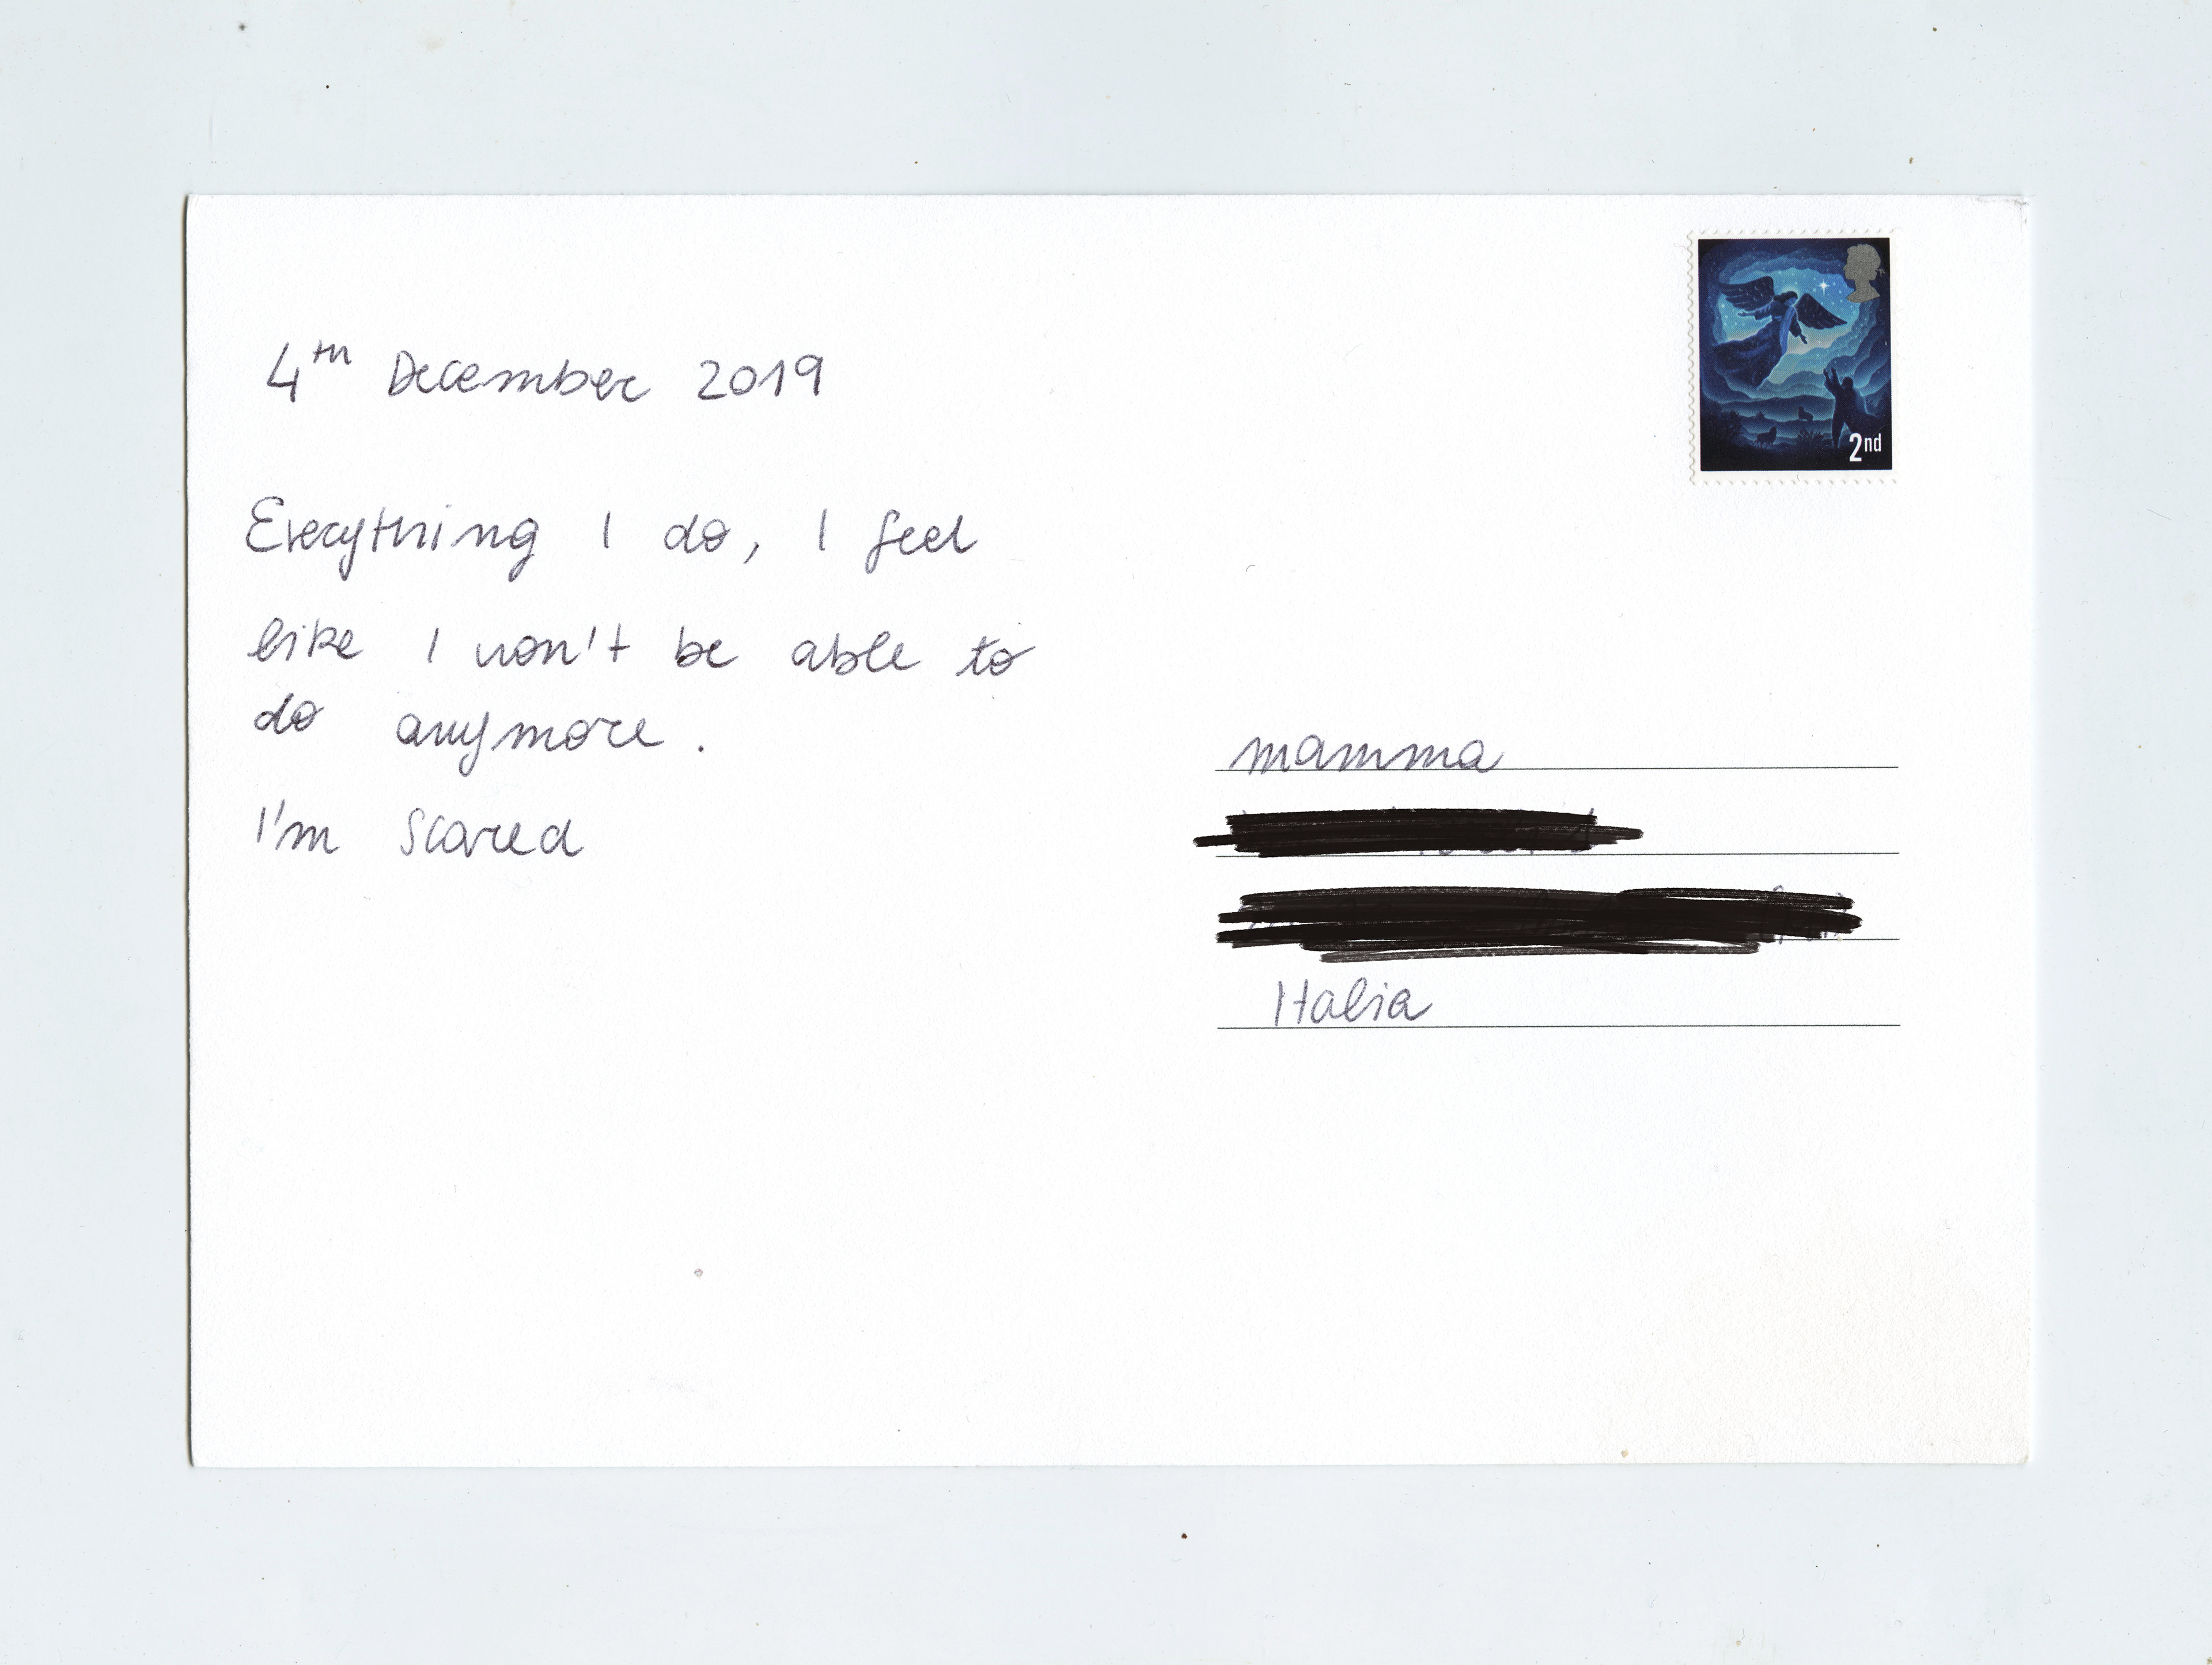 4th December 2019
Everything I do, I feel
like I won't be able to
do anymore.
I'm scared
2nd
mamma
Italia